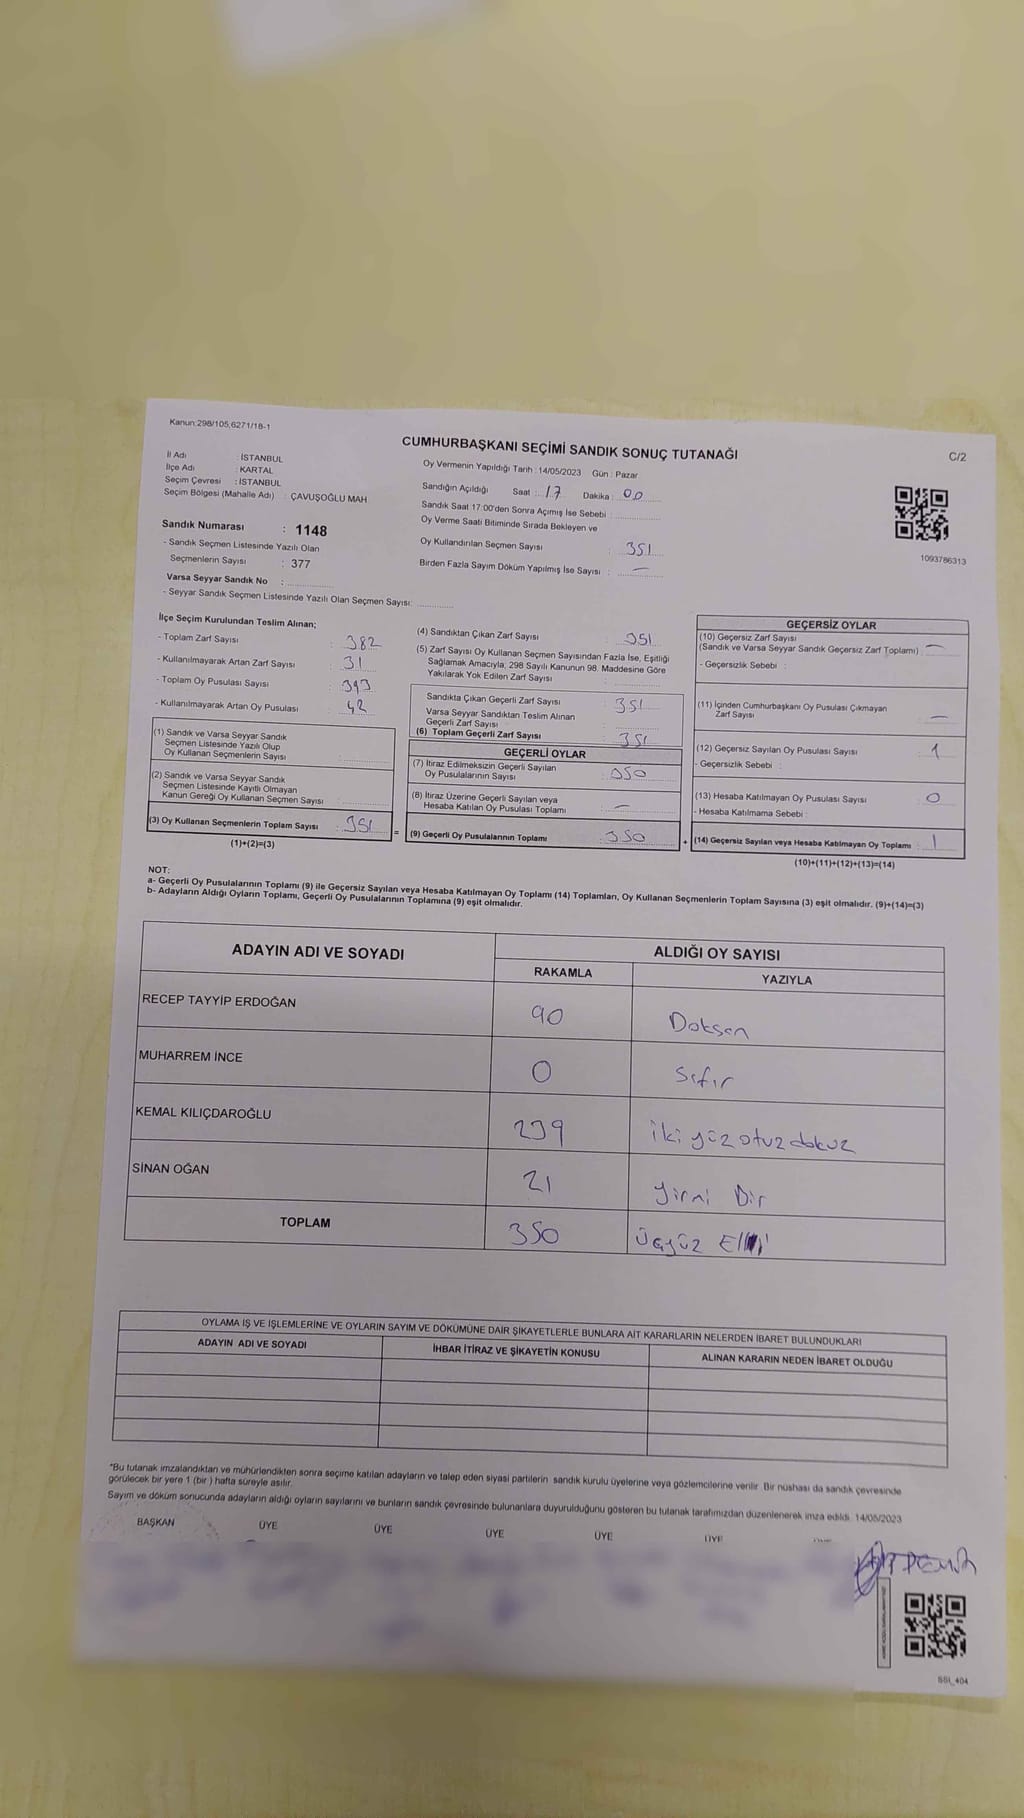 Kanun:298/105,6271/18-1
CUMHURBAŞKANI SEÇİMİ SANDIK SONUÇ TUTANAĞI
C/2
İl Adı : İSTANBUL
İlçe Adı : KARTAL
Seçim Çevresi : İSTANBUL
Seçim Bölgesi (Mahalle Adı) : ÇAVUŞOĞLU MAH
Oy Vermenin Yapıldığı Tarih : 14/05/2023 Gün : Pazar
Sandığın Açıldığı Saat : 17 Dakika : 00
Sandık Saat 17:00'den Sonra Açımış İse Sebebi :
Oy Verme Saati Bitiminde Sırada Bekleyen ve
Oy Kullandırılan Seçmen Sayısı : 351
Birden Fazla Sayım Döküm Yapılmış İse Sayısı : —
1093786313
Sandık Numarası : 1148
- Sandık Seçmen Listesinde Yazılı Olan
Seçmenlerin Sayısı : 377
Varsa Seyyar Sandık No :
- Seyyar Sandık Seçmen Listesinde Yazılı Olan Seçmen Sayısı:
İlçe Seçim Kurulundan Teslim Alınan;
- Toplam Zarf Sayısı : 382
- Kullanılmayarak Artan Zarf Sayısı : 31
- Toplam Oy Pusulası Sayısı : 393
- Kullanılmayarak Artan Oy Pusulası : 42
(1) Sandık ve Varsa Seyyar Sandık
Seçmen Listesinde Yazılı Olup
Oy Kullanan Seçmenlerin Sayısı :
(2) Sandık ve Varsa Seyyar Sandık
Seçmen Listesinde Kayıtlı Olmayan
Kanun Gereği Oy Kullanan Seçmen Sayısı :
(3) Oy Kullanan Seçmenlerin Toplam Sayısı : 351
(1)+(2)=(3)
=
(4) Sandıktan Çıkan Zarf Sayısı : 351
(5) Zarf Sayısı Oy Kullanan Seçmen Sayısından Fazla İse, Eşitliği
Sağlamak Amacıyla, 298 Sayılı Kanunun 98. Maddesine Göre
Yakılarak Yok Edilen Zarf Sayısı :
Sandıkta Çıkan Geçerli Zarf Sayısı : 351
Varsa Seyyar Sandıktan Teslim Alınan
Geçerli Zarf Sayısı :
(6) Toplam Geçerli Zarf Sayısı : 351
GEÇERLİ OYLAR
(7) İtiraz Edilmeksizin Geçerli Sayılan
Oy Pusulalarının Sayısı : 350
(8) İtiraz Üzerine Geçerli Sayılan veya
Hesaba Katılan Oy Pusulası Toplamı : —
(9) Geçerli Oy Pusulalarının Toplamı : 350
+
GEÇERSİZ OYLAR
(10) Geçersiz Zarf Sayısı
(Sandık ve Varsa Seyyar Sandık Geçersiz Zarf Toplamı) : —
- Geçersizlik Sebebi :
(11) İçinden Cumhurbaşkanı Oy Pusulası Çıkmayan
Zarf Sayısı : —
(12) Geçersiz Sayılan Oy Pusulası Sayısı : 1
- Geçersizlik Sebebi :
(13) Hesaba Katılmayan Oy Pusulası Sayısı : 0
- Hesaba Katılmama Sebebi :
(14) Geçersiz Sayılan veya Hesaba Katılmayan Oy Toplamı : 1
(10)+(11)+(12)+(13)=(14)
NOT:
a- Geçerli Oy Pusulalarının Toplamı (9) ile Geçersiz Sayılan veya Hesaba Katılmayan Oy Toplamı (14) Toplamları, Oy Kullanan Seçmenlerin Toplam Sayısına (3) eşit olmalıdır. (9)+(14)=(3)
b- Adayların Aldığı Oyların Toplamı, Geçerli Oy Pusulalarının Toplamına (9) eşit olmalıdır.
ADAYIN ADI VE SOYADI
ALDIĞI OY SAYISI
RAKAMLA YAZIYLA
RECEP TAYYİP ERDOĞAN 90 Doksan
MUHARREM İNCE 0 Sıfır
KEMAL KILIÇDAROĞLU 239 iki yüz otuz dokuz
SİNAN OĞAN 21 yirmi Bir
TOPLAM 350 üçyüz Elli
OYLAMA İŞ VE İŞLEMLERİNE VE OYLARIN SAYIM VE DÖKÜMÜNE DAİR ŞİKAYETLERLE BUNLARA AİT KARARLARIN NELERDEN İBARET BULUNDUKLARI
ADAYIN ADI VE SOYADI İHBAR İTİRAZ VE ŞİKAYETİN KONUSU ALINAN KARARIN NEDEN İBARET OLDUĞU
*Bu tutanak imzalandıktan ve mühürlendikten sonra seçime katılan adayların ve talep eden siyasi partilerin sandık kurulu üyelerine veya gözlemcilerine verilir. Bir nüshası da sandık çevresinde
görülecek bir yere 1 (bir ) hafta süreyle asılır.
Sayım ve döküm sonucunda adayların aldığı oyların sayılarını ve bunların sandık çevresinde bulunanlara duyurulduğunu gösteren bu tutanak tarafımızdan düzenlenerek imza edildi. 14/05/2023
BAŞKAN ÜYE ÜYE ÜYE ÜYE ÜYE
SSI_404